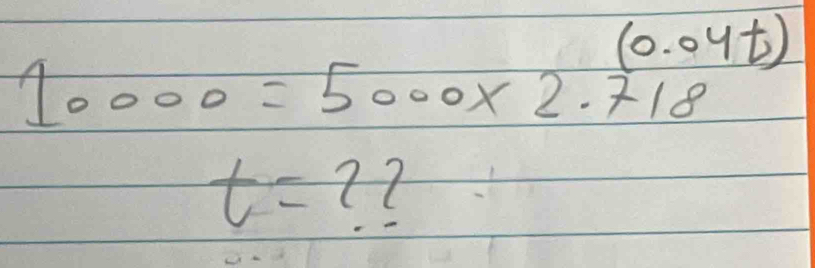 10000 = 5000 x 2.718^(0.04t)
t = ??